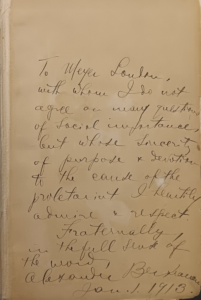 To Meyer London,
with whom I do not
agree on many questions
of social importance,
but whose sincerity
of purpose & devotion
to the cause of the
proletariat I heartily
admire & respect
Fraternally,
in the full sense of
the word,
Alexander Berkman
Jan. 1913.